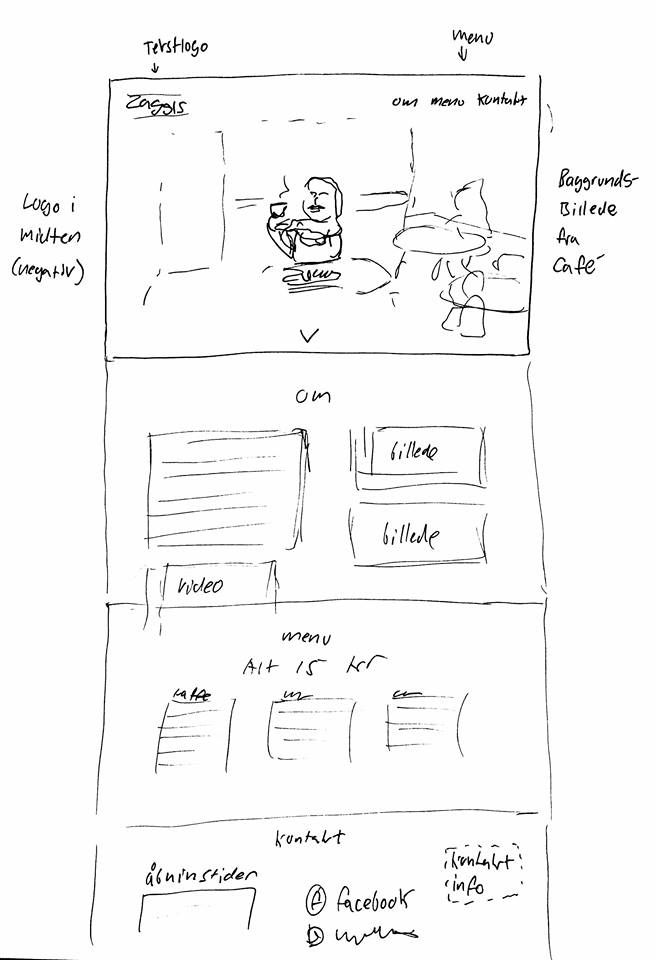 Tekstlogo
menu
Zaggis
om menu kontakt
Logo i
midten
(negativ)
Baggrunds-
Billede
fra
Café
om
billede
billede
video
menu
Alt 15 kr
kaffe
kontakt
åbninstider
facebook
kontakt
info